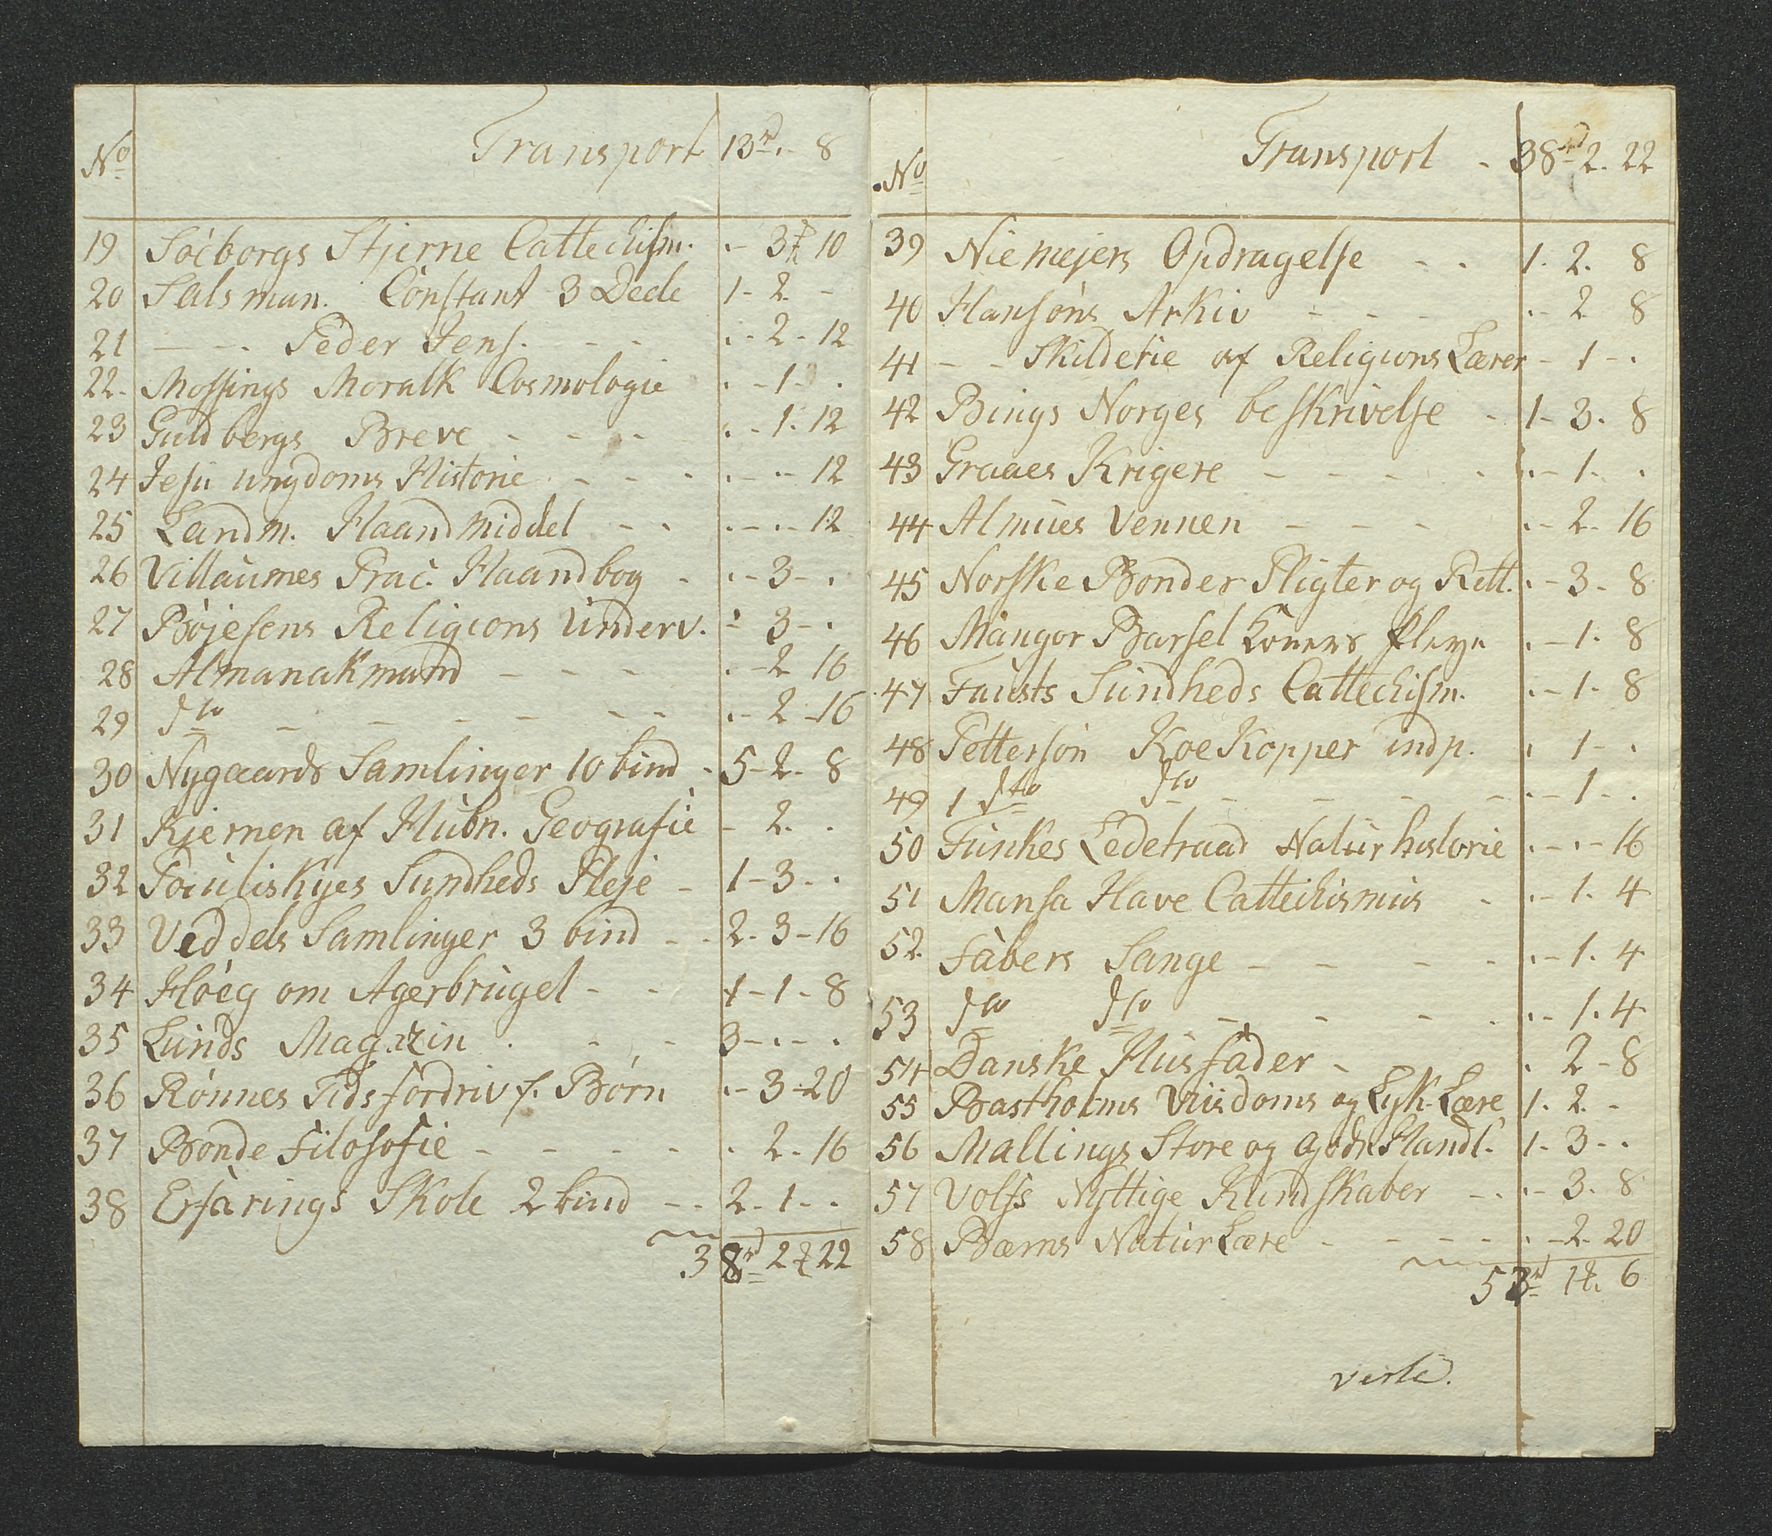 No Transport 13rd. - 8
19 Söeborgs Stjerne Cattechism. - 3 10
20 Salsman. Constant 3 Dele 1- 2. -
21 - - - Peder Jens. - - . - 2 - 12
22. Mossings Moralk Cosmologie . - 1 - .
23 Guldbergs Breve - - - . - 1. 12
24 Jesu ungdoms Historie - - - . - - 12
25 Landm. Haandmiddel - - . - . - 12
26 Villaumes Prac. Haandbog - . - 3 - .
27 Böjesens Religions Underv. - 3 - .
28 Almanakmand - - - . - 2 16
29 Dto - - - - - - . - 2 - 16
30 Nygaards Samlinger 10 bind - 5 - 2 - 8
31 Kjernen af Hübn. Geografie - 2. .
32 Sundheds Pleje - 1 - 3 - .
33 Veddels Samlinger 3 bind - - 2 - 3 - 16
34 Höeg om Agerbruget - - 1 - 1 - 8
35 Lunds Magazin . - - 3 - . - .
36 Rönnes Tidsfordriv f. Börn . - 3 - 20
37 Bonde Filosofie - - - - . 2 - 16
38 Erfarings Skole 2 bind - - 2 - 1 - .
38rd 2 22
No Transport - 38rd 2. 22
39 Niemejers Opdragelse - - 1. 2. 8
40 Hansöns Arkiv - - - . - 2 8
41 - - Skilderie af Religions Lærer - 1 - .
42 Bings Norges beskrivelse - 1 - 3. 8
43 Graaes Krigere - - - - . - 1 - .
44 Almues Vennen - - - . - 2 - 16
45 Norske Bonder Pligter og Rett. . - 3 - 8
46 Mangor Barsel Koners Pleye . - 1. 8
47 Fausts Sundheds Cattechism. . - 1. 8
48 Pettersön Koe Kopper indp. . 1 - .
49 1 Dto Dto - - - - . - 1 - .
50 Funkes Ledetraad Naturhistorie . - . - 16
51 Mansa Have Cattechismus - . - 1. 4
52. Fabers Sange - - - - . - 1. 4
53 Dto Dto - - - . - 1. 4
54 Danske Husfader - . 2 - 8
55 Bastholms Viisdoms og Lyk. Lære 1. 2. -
56 Mallings Store og Gode Handl. 1 - 3 - .
57 Volfs Nyttige Kundskaber - . - 3. 8
58 Bærns Natur Lære - - - - . - 2. 20
53rd 1 6
verte.